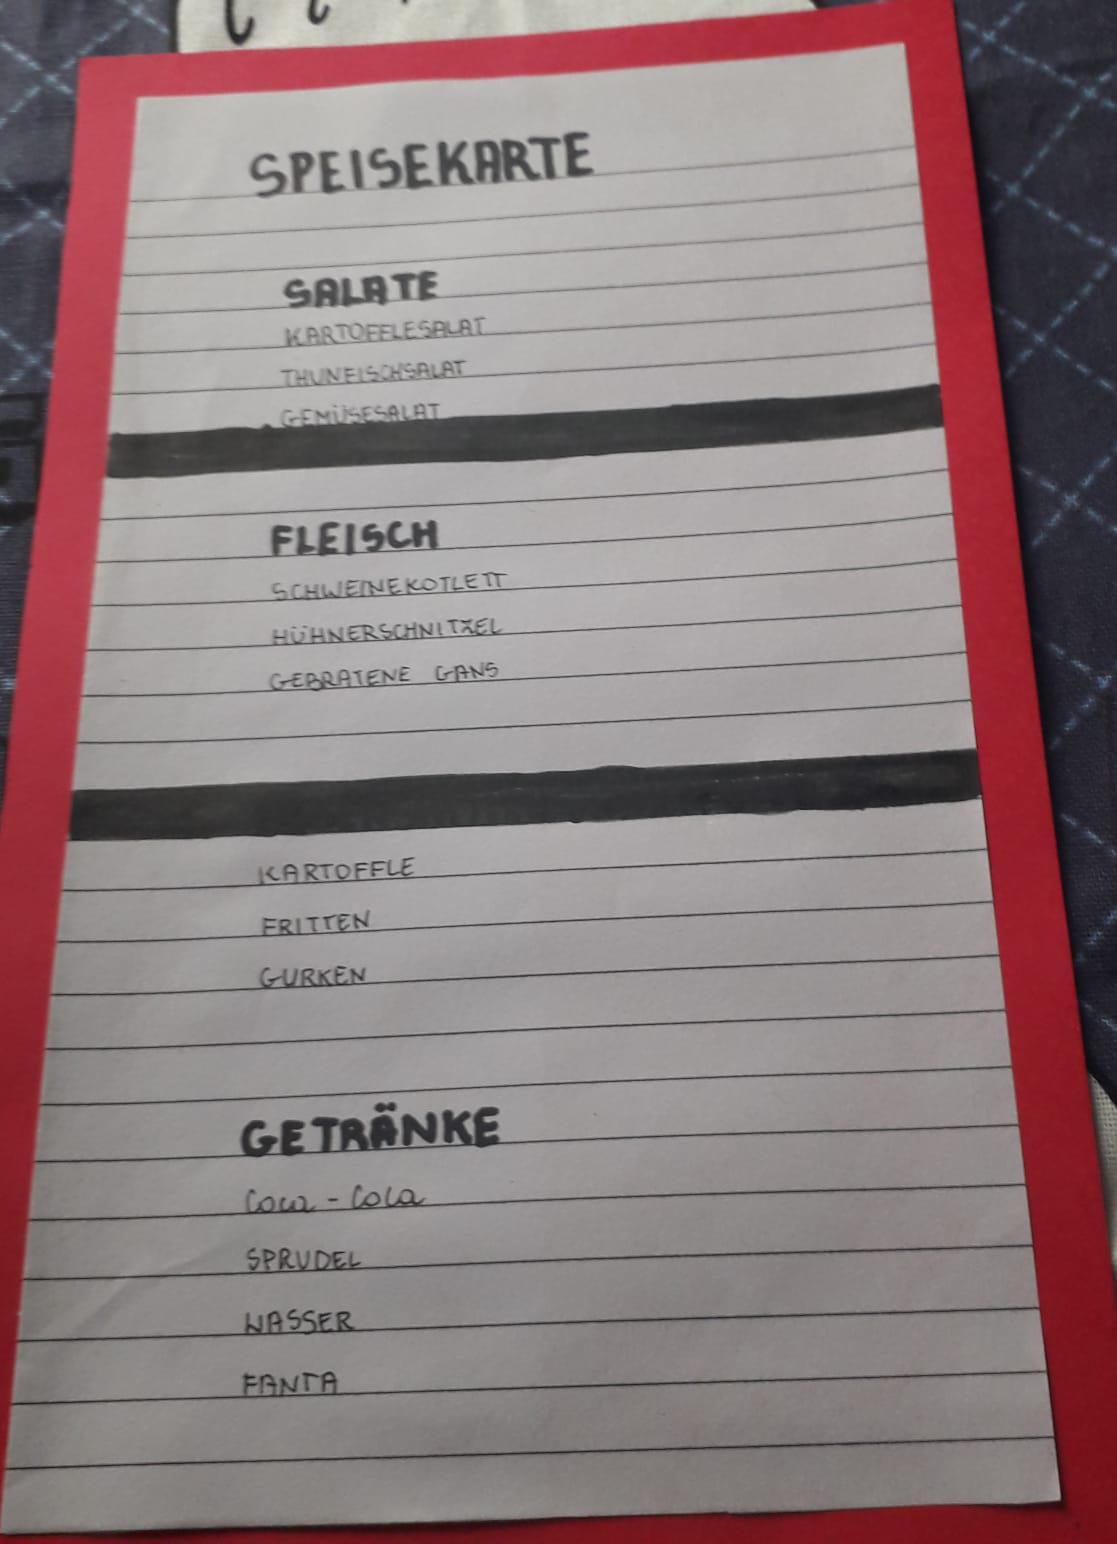 SPEISEKARTE
SALATE
KARTOFFLESALAT
THUNFISCHSALAT
GEMÜSESALAT
FLEISCH
SCHWEINEKOTLETT
HÜHNERSCHNITZEL
GEBRATENE GANS
KARTOFFLE
FRITTEN
GURKEN
GETRÄNKE
Coca-Cola
SPRUDEL
WASSER
FANTA